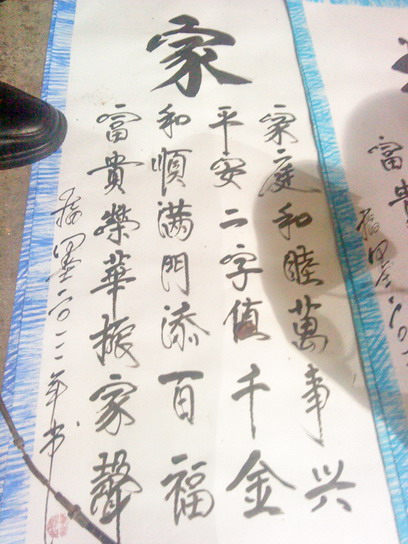 家
家庭和睦萬事兴
平安二字值千金
和順满門添百福
富貴榮華振家聲
二〇一一年书
富貴